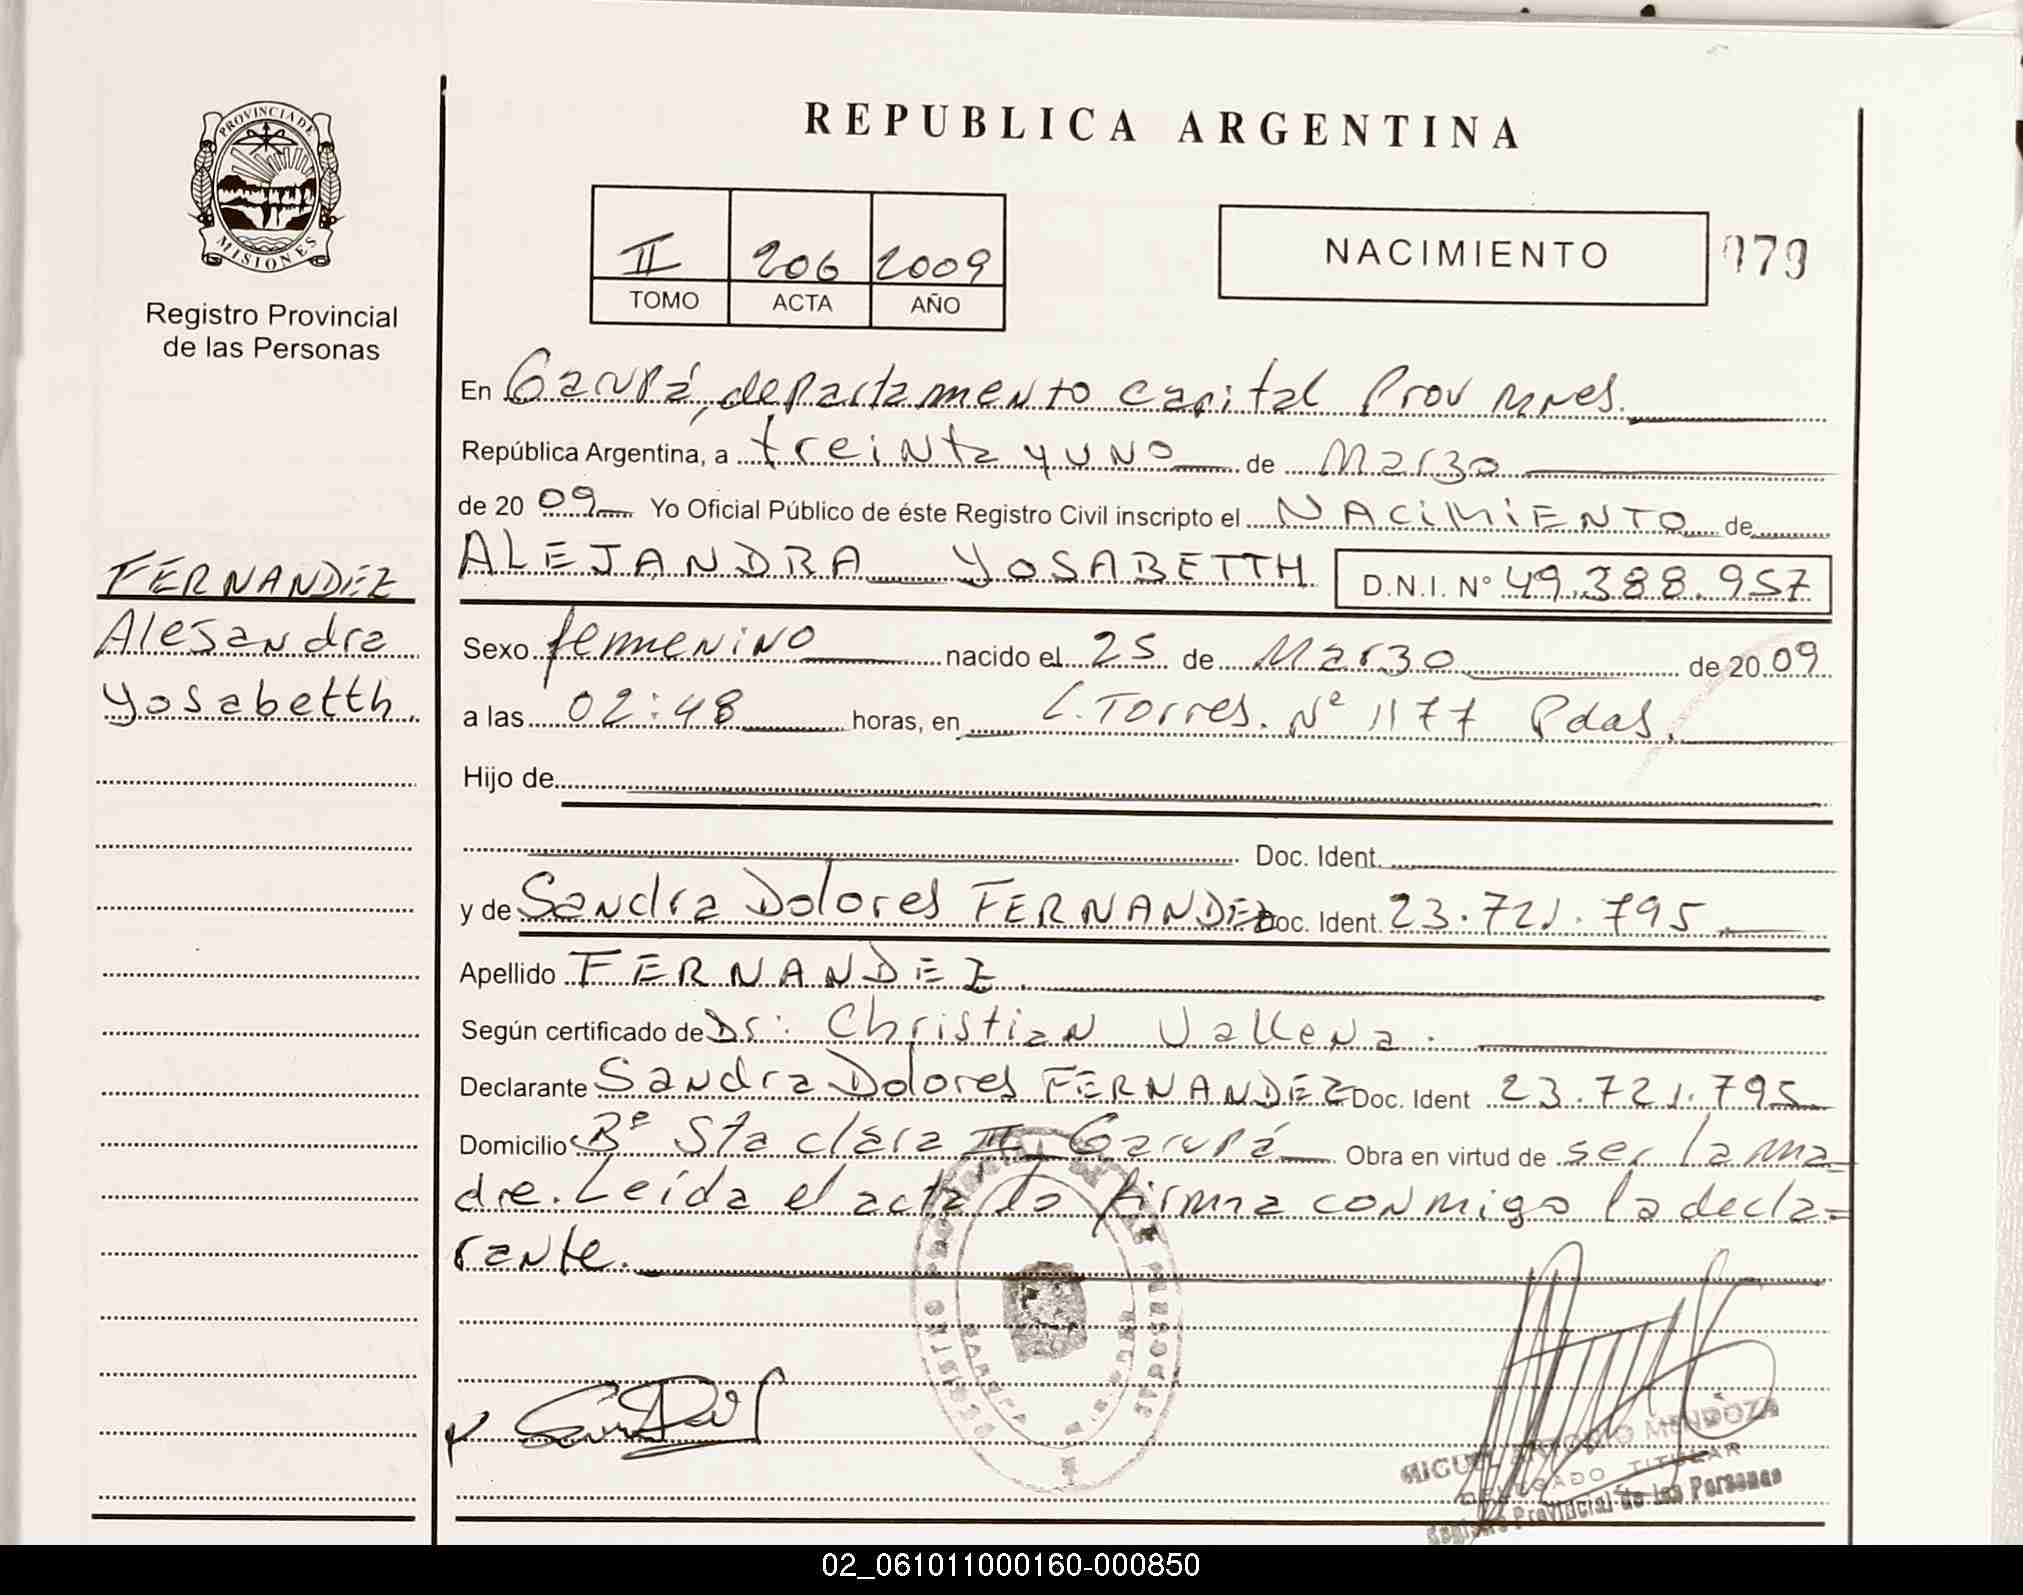 PROVINCIA DE
MISIONES
Registro Provincial
de las Personas
FERNANDEZ
Alesandra
Yosabetth.
REPUBLICA ARGENTINA
II 206 2009
TOMO ACTA AÑO
NACIMIENTO 079
En Garupá, departamento capital Prov Mnes.
República Argentina, a treinta y uno de Marzo
de 20 09 Yo Oficial Público de éste Registro Civil inscripto el NACIMIENTO de
ALEJANDRA YOSABETTH D.N.I. N° 49.388.957
Sexo femenino nacido el 25 de Marzo de 20 09
a las 02:48 horas, en C. Torres. Nº 1177 Pdas.
Hijo de
Doc. Ident.
y de Sandra Dolores FERNANDEZ Doc. Ident. 23.721.795
Apellido FERNANDEZ.
Según certificado de Dr: Christian
Declarante Sandra Dolores FERNANDEZ Doc. Ident 23.721.795
Domicilio Bº Sta clara II Garupá Obra en virtud de ser la ma=
dre. Leída el acta la firma conmigo la decla=
rante.
MIGUEL ANTONIO MENDOZA
DELEGADO TITULAR
Registro Provincial de las Personas
02_061011000160-000850